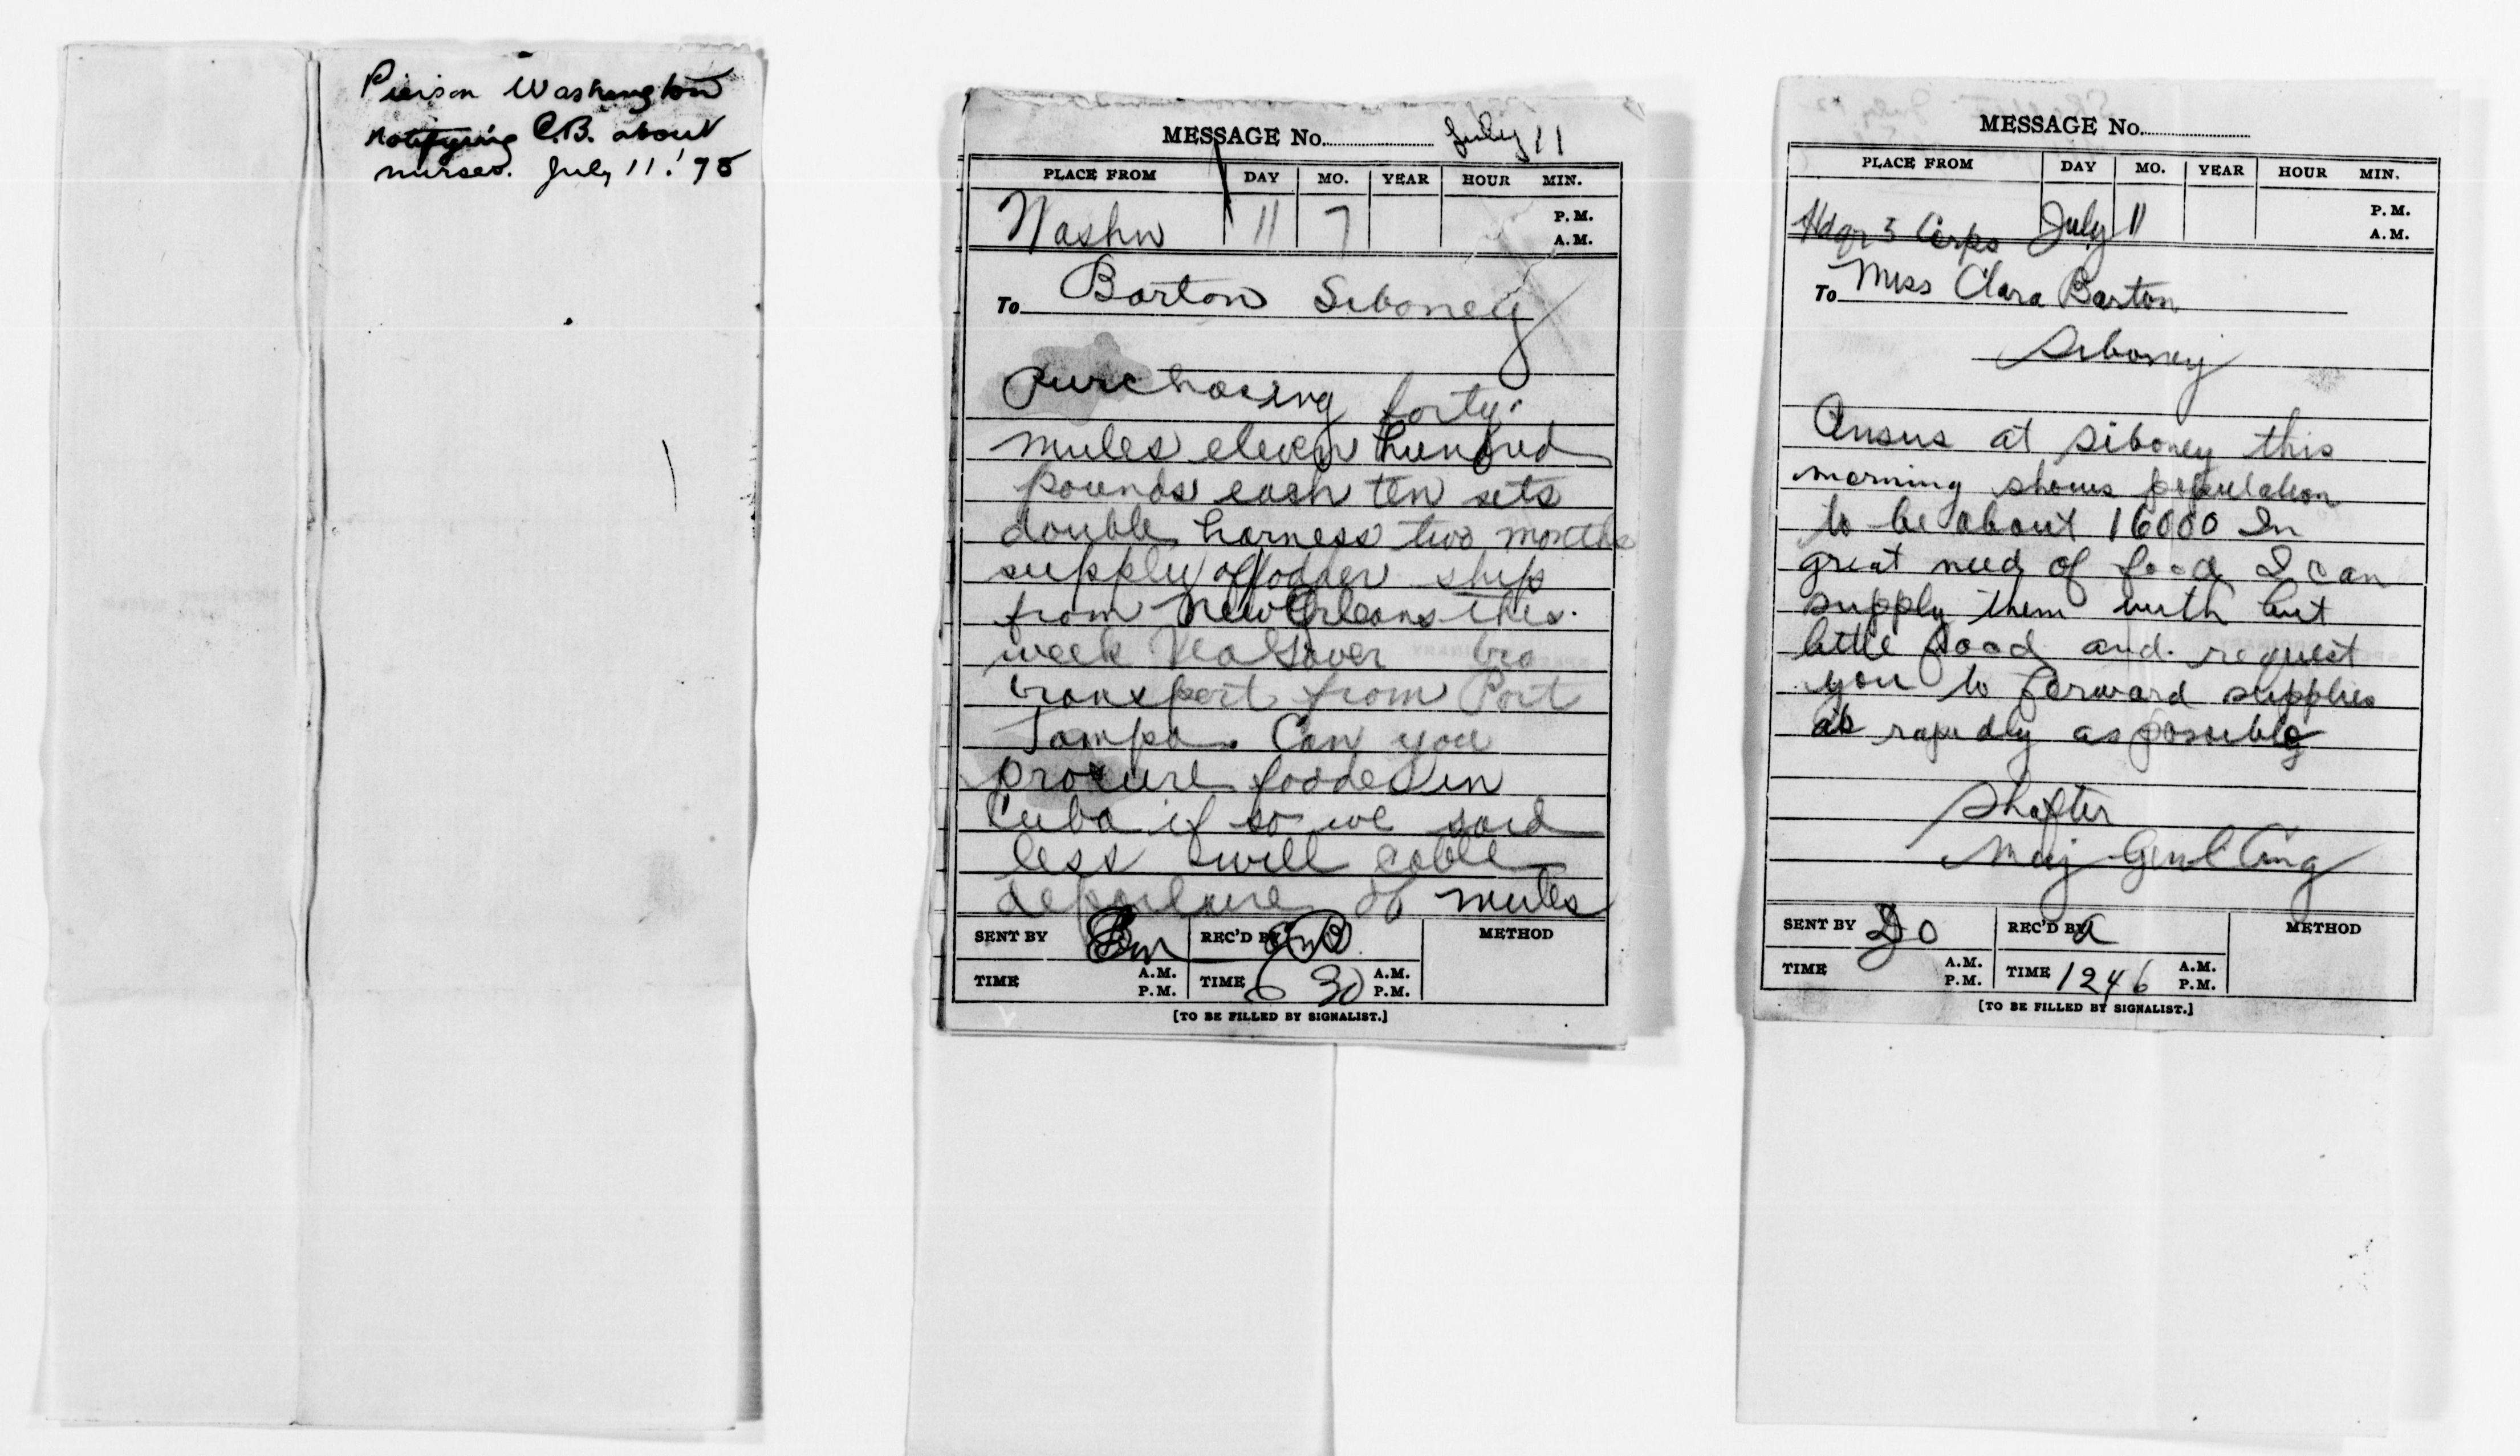 Pierson Washington
notifying C.B. about
nurses. July 11. '98
MESSAGE No. July 11
PLACE FROM DAY MO. YEAR HOUR MIN.
Washn 11 7 P.M. A.M.
To Barton Siboney
Purchasing forty
mules eleven hundred
pounds each ten sets
double harness two months
supply of fodder ship
from New Orleans this
week via
transport from Port
Tampa. Can you
procure fodder in
Cuba if so we
less will cable
departure of mules
SENT BY REC'D BY METHOD
TIME A.M. P.M. TIME 6 30 A.M. P.M.
[TO BE FILLED BY SIGNALIST.]
MESSAGE No.
PLACE FROM DAY MO. YEAR HOUR MIN.
Hdqr 5 Corps July 11 P.M. A.M.
To Miss Clara Barton
Siboney
Census at Siboney this
morning shows population
to be about 16000 In
great need of food I can
supply them with but
little food and request
you to forward supplies
as rapidly as possible
Shafter
Maj Genl Cmg
SENT BY Do REC'D BY a METHOD
TIME A.M. P.M. TIME 1246 A.M. P.M.
[TO BE FILLED BY SIGNALIST.]